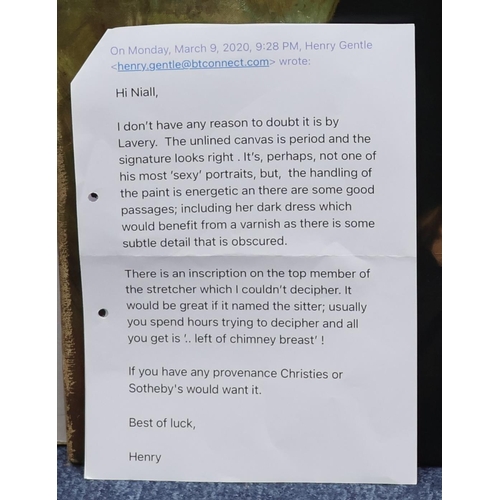 On Monday, March 9, 2020, 9:28 PM, Henry Gentle
<henry.gentle@btconnect.com> wrote:
Hi Niall,
I don't have any reason to doubt it is by
Lavery. The unlined canvas is period and the
signature looks right . It's, perhaps, not one of
his most 'sexy' portraits, but, the handling of
the paint is energetic an there are some good
passages; including her dark dress which
would benefit from a varnish as there is some
subtle detail that is obscured.
There is an inscription on the top member of
the stretcher which I couldn't decipher. It
would be great if it named the sitter; usually
you spend hours trying to decipher and all
you get is '.. left of chimney breast' !
If you have any provenance Christies or
Sotheby's would want it.
Best of luck,
Henry